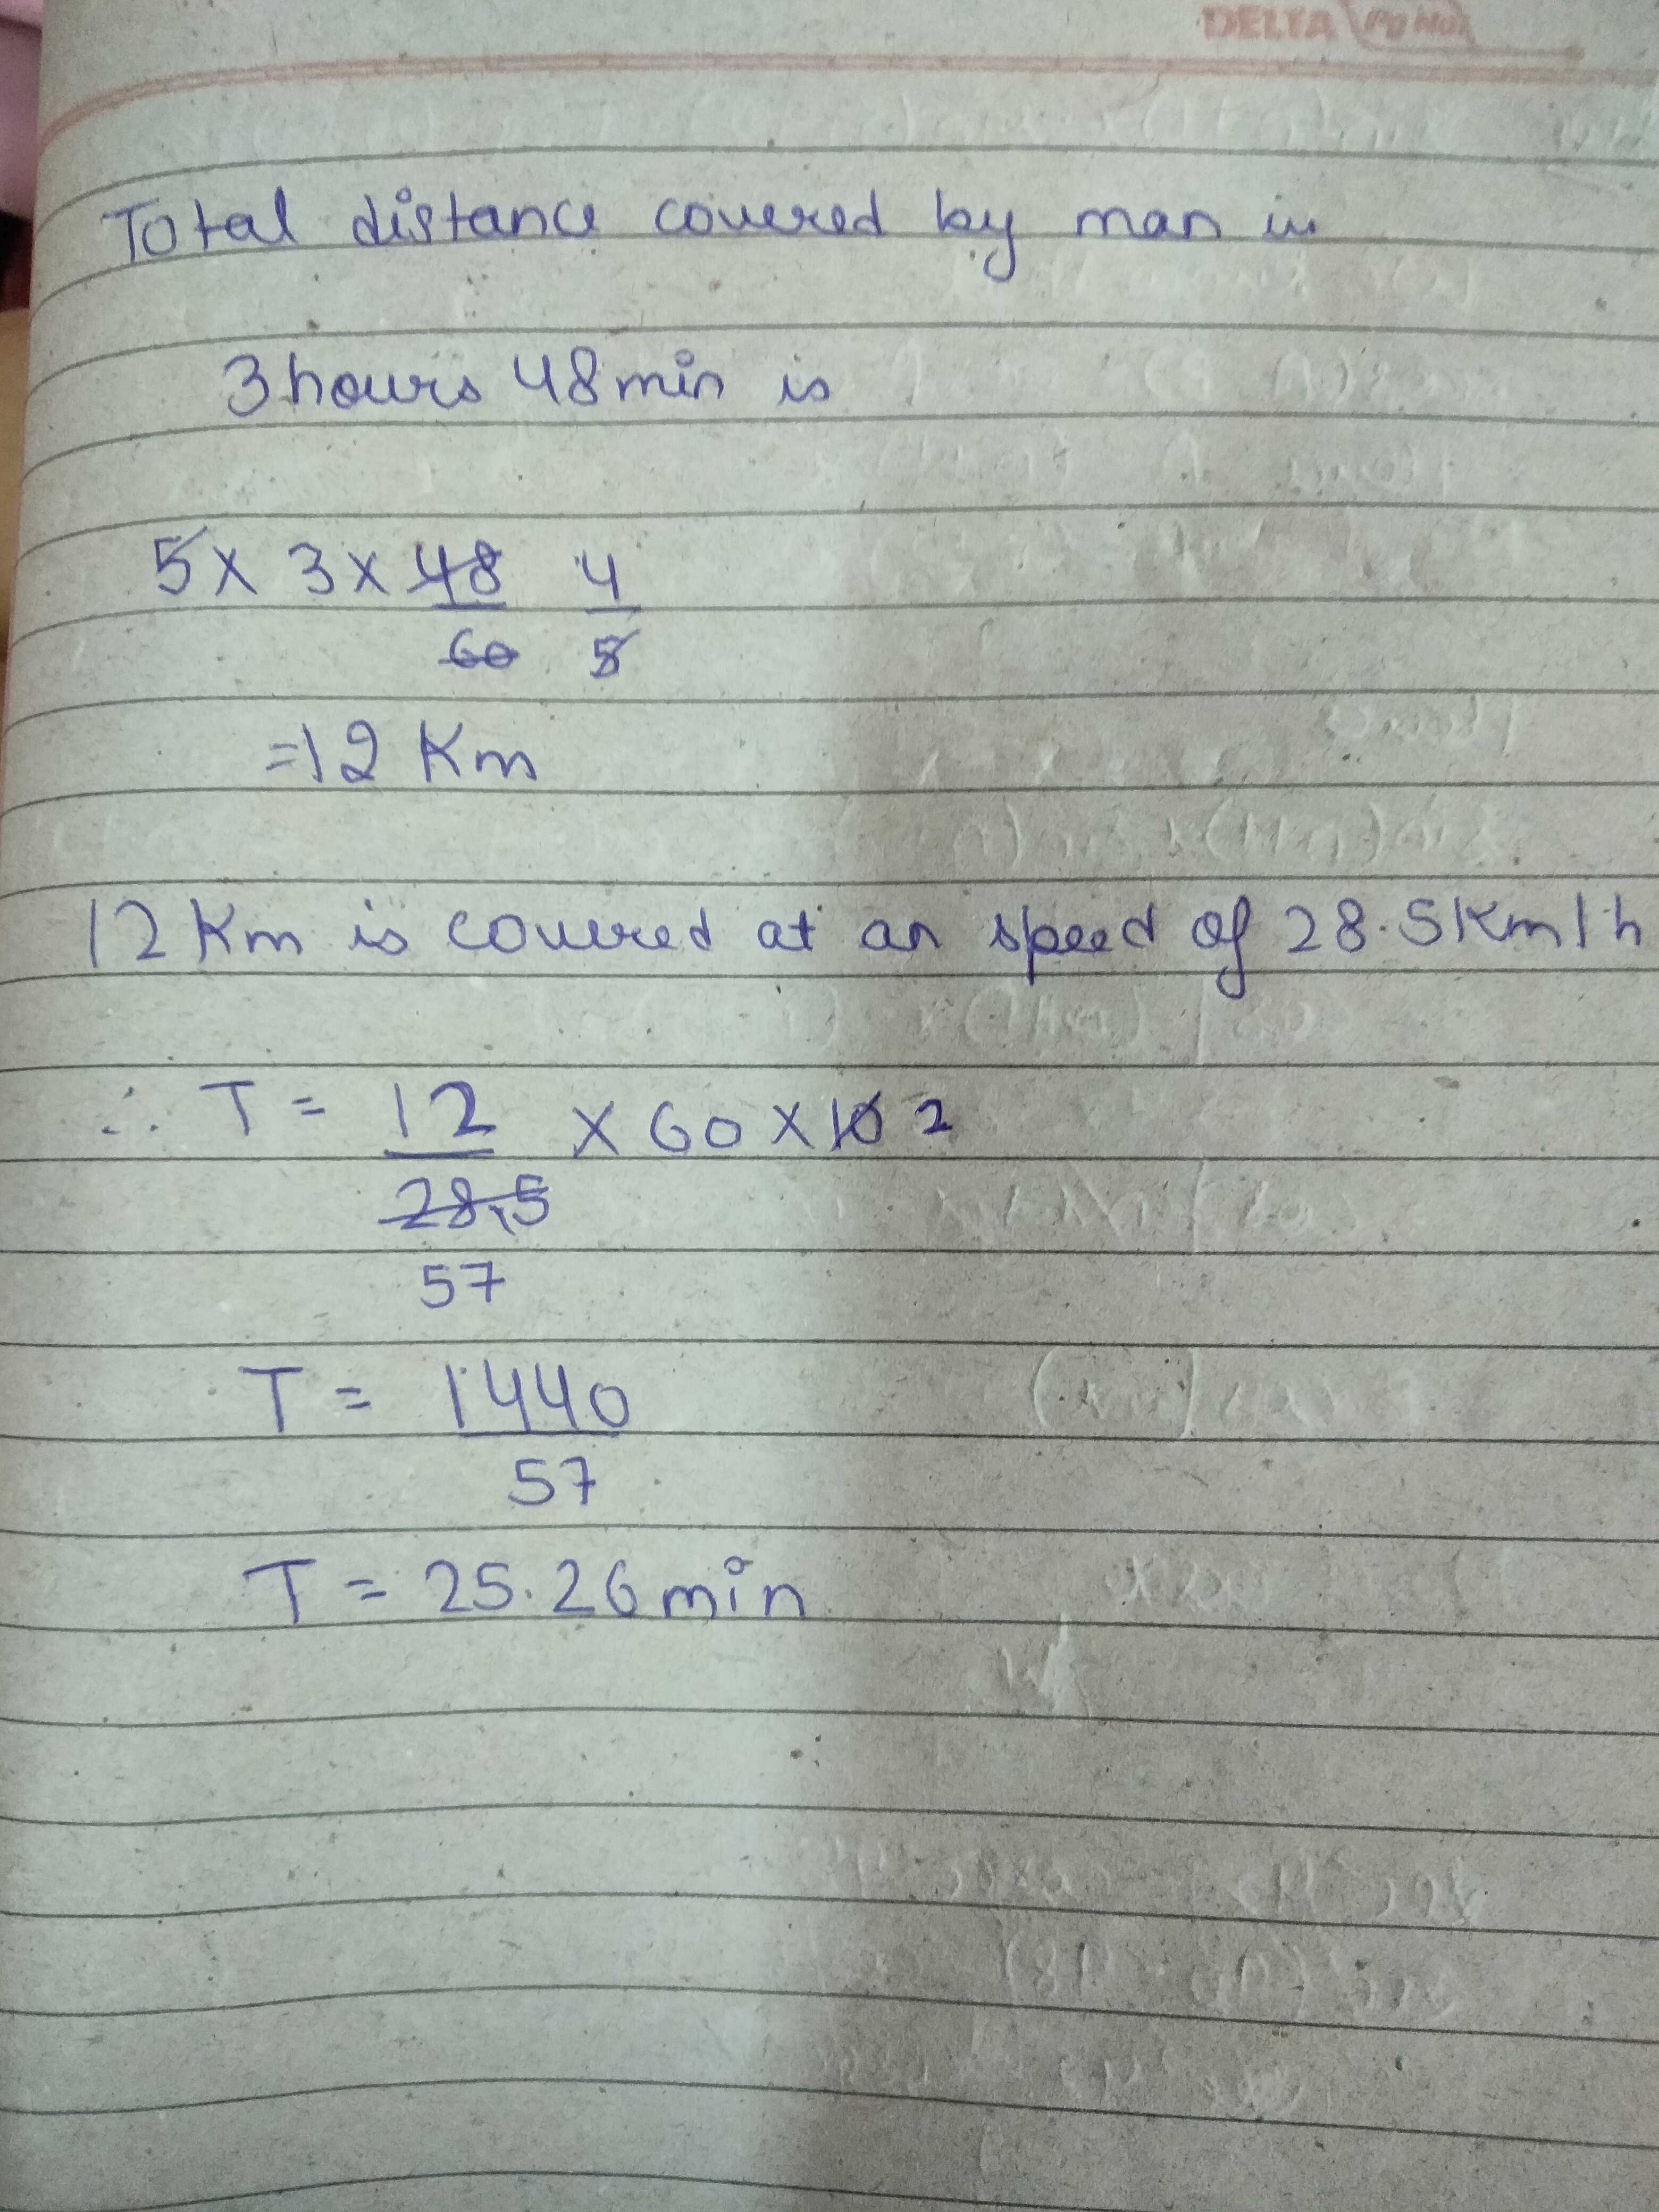 DELTA Pg No.
Total distance covered by man in
3 hours 48 min is
5 x 3 x 48/60 4/5
=12 Km
12 Km is covered at an speed of 28.5 Km/h
∴ T = 12/28.5 x 60 x 10 2
57
T = 1440/57
T = 25.26 min